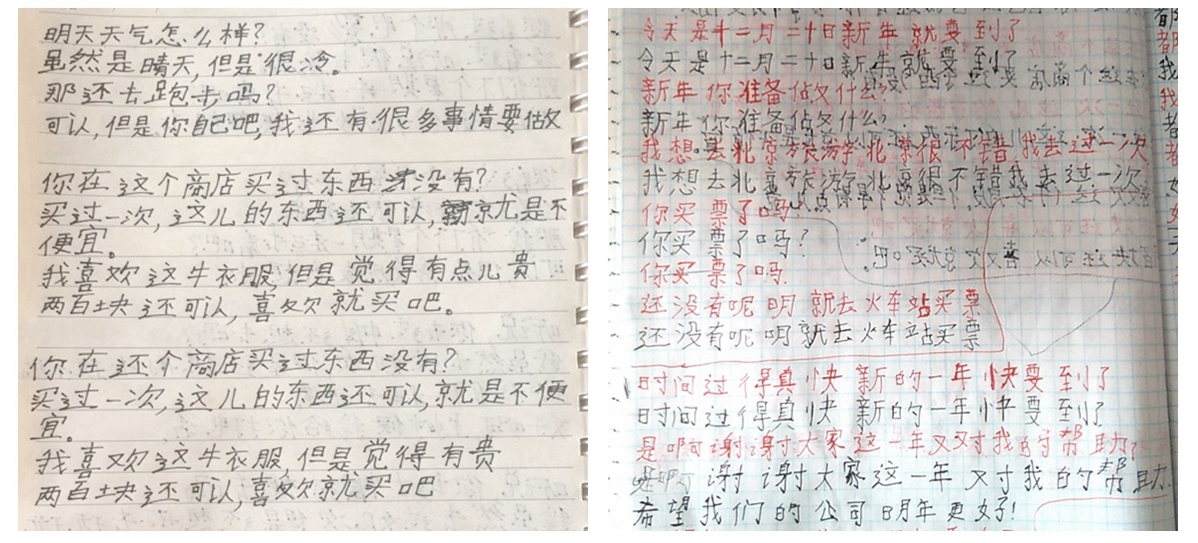 明天天气怎么样?
虽然是晴天,但是很冷。
那还去跑步吗?
可以,但是你自己吧,我还有很多事情要做
你在这个商店买过东西没有?
买过一次,这儿的东西还可以,就是不
便宜。
我喜欢这件衣服,但是觉得有点儿贵
两百块还可以,喜欢就买吧。
你在这个商店买过东西没有?
买过一次,这儿的东西还可以,就是不便
宜。
我喜欢这件衣服,但是觉得有贵
两百块还可以,喜欢就买吧
今天是十二月二十日新年就要到了
今天是十二月二十日新年就要到了
新年你准备做什么?
新年你准备做什么?
我想去北京旅游北京很不错我去过一次
我想去北京旅游北京很不错我去过一次
你买票了吗
你买票了吗?
你买票了吗
还没有呢明就去火车站买票
还没有呢明就去火车站买票
时间过得真快新的一年快要到了
时间过得真快新的一年快要到了
是啊谢谢大家这一年又对我的帮助
是啊谢谢大家这一年对我的帮助
希望我们的公司明年更好!